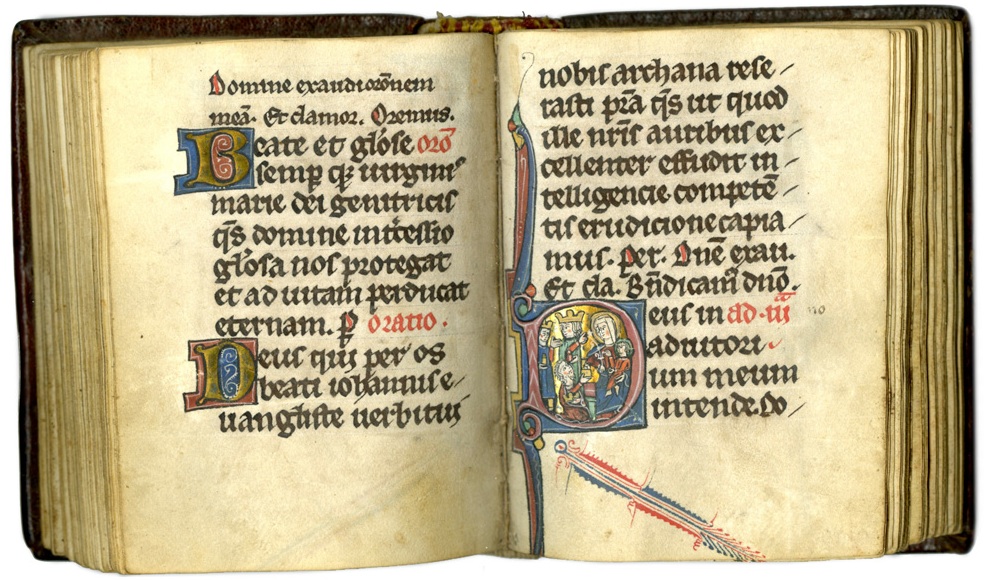 Domine exaudi orõnem
meã. Et clamor. Oremus.
Beate et glõse orõ
semp̱ qꝫ uirginis
marie dei genitricis
q̃s domine int̾cessio
glõsa nos protegat
et ad uitam perducat
eternam. p̱ oratio.
Deus qui per os
beati iohannis e/
uangliste uerbi tui
nobis archana rese/
rasti pr̃a q̃s ut quod
ille nr̃is auribus ex/
cellenter effudit in/
telligencie competẽ/
tis erudicione capia/
mus. Per. Dñẽ exau.
Et cla. Bñdicam̃ dño.
Deus in ad.iij
no
adiutori
um meum
intende. Do/